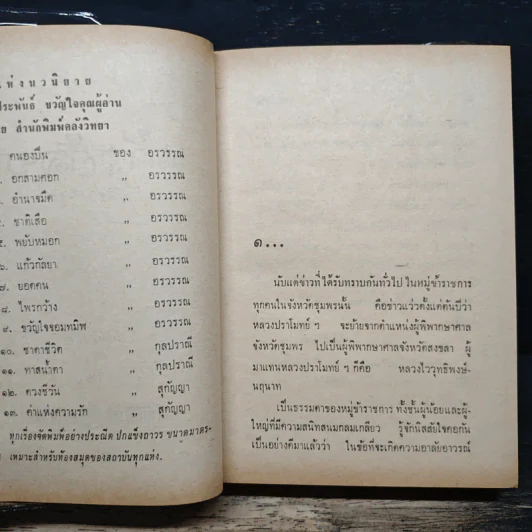 แห่งนวนิยาย
ประพันธ์ ขวัญใจคุณผู้อ่าน
สำนักพิมพ์คลังวิทยา
คนองปืน ของ อรวรรณ
อกสามศอก ,, อรวรรณ
อำนาจมืด ,, อรวรรณ
ชาติเสือ ,, อรวรรณ
๕. พยับหมอก ,, อรวรรณ
๖. แก้วกัลยา ,, อรวรรณ
๗. ยอดคน ,, อรวรรณ
๘. ไพรกว้าง ,, อรวรรณ
๙. ขวัญใจจอมทมิฬ ,, อรวรรณ
๑๐. ซาตาชีวิต ,, กุลปราณี
๑๑. ทาสน้ำตา ,, กุลปราณี
๑๒. ดวงชีวัน ,, สุกัญญา
๑๓. ค่าแห่งความรัก ,, สุกัญญา
ทุกเรื่องจัดพิมพ์อย่างประณีต ปกแข็งถาวร ขนาดมาตร-
เหมาะสำหรับห้องสมุดของสถาบันทุกแห่ง.
๑...
นับแต่ข่าวที่ได้รับทราบกันทั่วไป ในหมู่ข้าราชการ
ทุกคนในจังหวัดชุมพรนั้น คือข่าวแว่วตั้งแต่ต้นปีว่า
หลวงปราโมทย์ ฯ จะย้ายจากตำแหน่งผู้พิพากษาศาล
จังหวัดชุมพร ไปเป็นผู้พิพากษาศาลจังหวัดสงขลา ผู้
มาแทนหลวงปราโมทย์ ฯ ก็คือ หลวงไววุฑธิพงษ์-
นฤนาท
เป็นธรรมดาของหมู่ข้าราชการ ทั้งชั้นผู้น้อยและผู้-
ใหญ่ที่มีความสนิทสนมกลมเกลียว รู้จักนิสสัยใจคอกัน
เป็นอย่างดีมาแล้วว่า ในข้อที่จะเกิดความอาลัยอาวรณ์